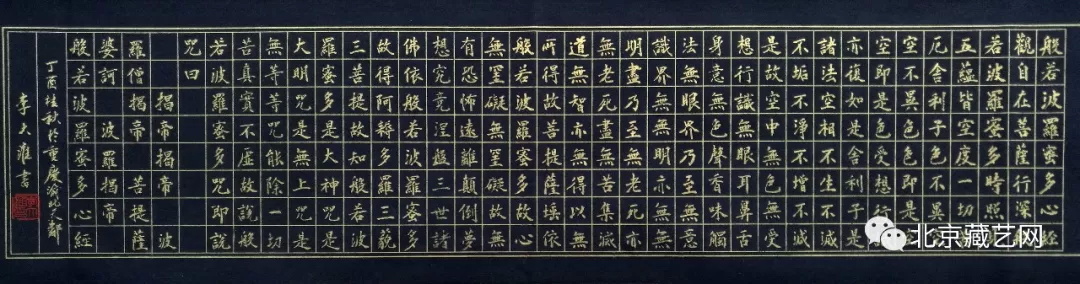 般若波羅蜜多心経
觀自在菩薩行深般
若波羅蜜多時照
五蘊皆空度一切
厄舍利子色不異
空不異色色即是
空即是色受想行
亦復如是舍利子是
諸法空相不生不滅
不垢不淨不增不減
是故空中無色無受
想行識無眼耳鼻舌
身意無色聲香味觸
法無眼界乃至無意
識界無無明亦無無
明盡乃至無老死亦
無老死盡無苦集滅
道無智亦無得以無
所得故菩提薩埵依
般若波羅蜜多故心
無罣礙無罣礙故無
有恐怖遠離顛倒夢
想究竟涅槃三世諸
佛依般若波羅蜜多
故得阿耨多羅三藐
三菩提故知般若波
羅蜜多是大神咒是
大明咒是無上咒是
無等等咒能除一切
苦真實不虛故說般
若波羅蜜多咒即說
咒曰
揭帝揭帝 波
羅僧揭帝菩提薩
婆訶 波羅揭帝
般若波羅蜜多心經
丁酉桂秋於重慶渝北天鄰
李大淮書
北京藏艺网